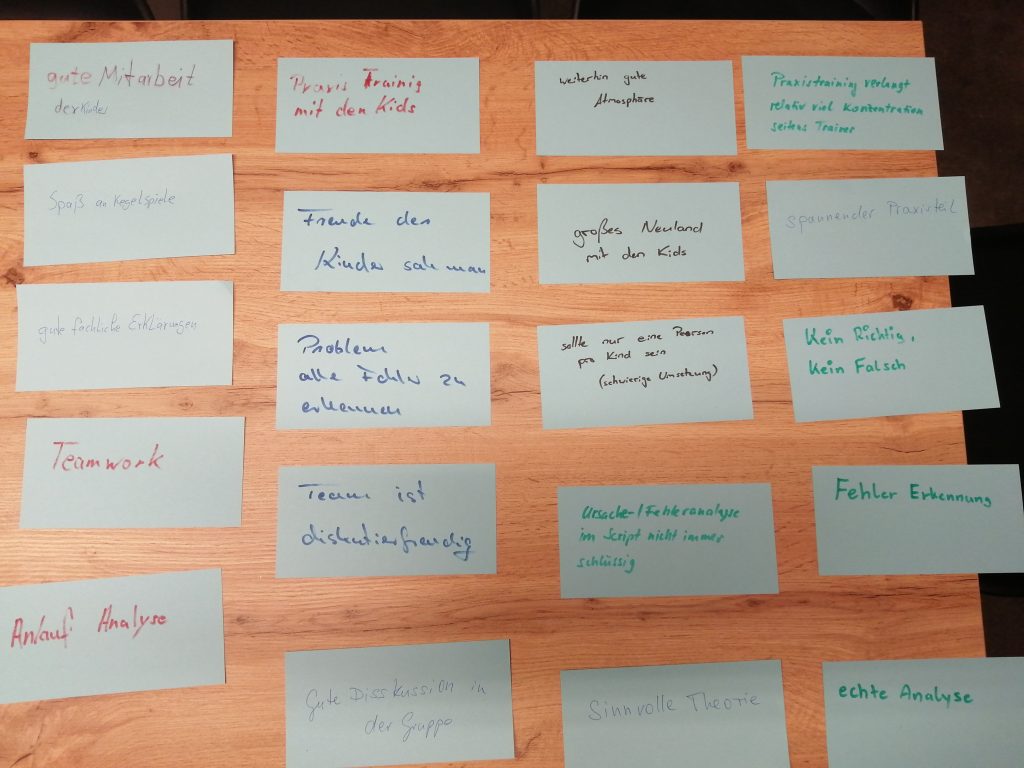 gute Mitarbeit
der Kinder
Spaß an Kegelspiele
gute fachliche Erklärungen
Teamwork
Anlauf Analyse
Praxis Trainig
mit den Kids
Freude der
Kinder sah man
Problem
alle Fehler zu
erkennen
Team ist
diskutierfreudig
Gute Disskussion in
der Gruppe
weiterhin gute
Atmosphäre
großes Neuland
mit den Kids
sollte nur eine Peerson
pro Kind sein
(schwierige Umsetzung)
Ursache-/Fehleranalyse
im Script nicht immer
schlüssig
Sinnvolle Theorie
Praxistraining verlangt
relativ viel Konzentration
seitens Trainer
spannender Praxisteil
Kein Richtig,
Kein Falsch
Fehler Erkennung
echte Analyse